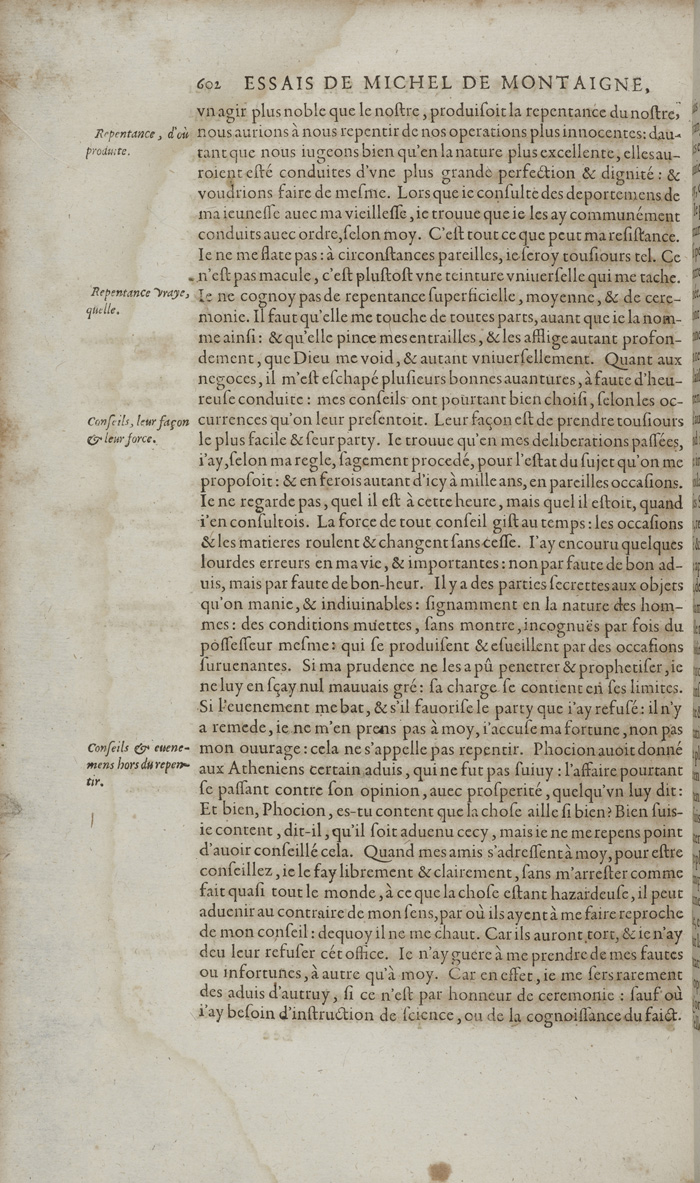 602 ESSAIS DE MICHEL DE MONTAIGNE,
vn agir plus noble que le noſtre, produiſoit la repentance du noſtre,
Repentance, d'où
produite.
nous aurions à nous repentir de nos operations plus innocentes: dau-
tant que nous iugeons bien qu'en la nature plus excellente, elles au-
roient eſté conduites d'vne plus grande perfection & dignité: &
voudrions faire de meſme. Lors que ie conſulte des deportemens de
ma ieuneſſe auec ma vieilleſſe, ie trouue que ie les ay communément
conduits auec ordre, ſelon moy. C'eſt tout ce que peut ma reſiſtance.
Ie ne me flate pas: à circonſtances pareilles, ie ſeroy touſiours tel. Ce
n'eſt pas macule, c'eſt pluſtoſt vne teinture vniuerſelle qui me tache.
Repentance vraye,
quelle.
Ie ne cognoy pas de repentance ſuperficielle, moyenne, & de cere-
monie. Il faut qu'elle me touche de toutes parts, auant que ie la nom-
me ainſi: & qu'elle pince mes entrailles, & les afflige autant profon-
dement, que Dieu me void, & autant vniuerſellement. Quant aux
negoces, il m'eſt eſchapé pluſieurs bonnes auantures, à faute d'heu-
reuſe conduite: mes conſeils ont pourtant bien choiſi, ſelon les oc-
Conſeils, leur façon
& leur force.
currences qu'on leur preſentoit. Leur façon eſt de prendre touſiours
le plus facile & ſeur party. Ie trouue qu'en mes deliberations paſſées,
i'ay, ſelon ma regle, ſagement procedé, pour l'eſtat du ſujet qu'on me
propoſoit: & en ferois autant d'icy à mille ans, en pareilles occaſions.
Ie ne regarde pas, quel il eſt à cette heure, mais quel il eſtoit, quand
i'en conſultois. La force de tout conſeil giſt au temps: les occaſions
& les matieres roulent & changent ſans ceſſe. I'ay encouru quelques
lourdes erreurs en ma vie, & importantes: non par faute de bon ad-
uis, mais par faute de bon-heur. Il y a des parties ſecrettes aux objets
qu'on manie, & indiuinables: ſignamment en la nature des hom-
mes: des conditions muettes, ſans montre, incognuës par fois du
poſſeſſeur meſme: qui ſe produiſent & eſueillent par des occaſions
ſuruenantes. Si ma prudence ne les a pû penetrer & prophetiſer, ie
ne luy en ſçay nul mauuais gré: ſa charge ſe contient en ſes limites.
Si l'euenement me bat, & s'il fauoriſe le party que i'ay refuſé: il n'y
a remede, ie ne m'en prens pas à moy, i'accuſe ma fortune, non pas
Conſeils & euene-
mens hors du repen-
tir.
mon ouurage: cela ne s'appelle pas repentir. Phocion auoit donné
aux Atheniens certain aduis, qui ne fut pas ſuiuy: l'affaire pourtant
ſe paſſant contre ſon opinion, auec proſperité, quelqu'vn luy dit:
Et bien, Phocion, es-tu content que la choſe aille ſi bien? Bien ſuis-
ie content, dit-il, qu'il ſoit aduenu cecy, mais ie ne me repens point
d'auoir conſeillé cela. Quand mes amis s'adreſſent à moy, pour eſtre
conſeillez, ie le fay librement & clairement, ſans m'arreſter comme
fait quaſi tout le monde, à ce que la choſe eſtant hazardeuſe, il peut
aduenir au contraire de mon ſens, par où ils ayent à me faire reproche
de mon conſeil: dequoy il ne me chaut. Car ils auront tort, & ie n'ay
deu leur refuſer cét office. Ie n'ay guere à me prendre de mes fautes
ou infortunes, à autre qu'à moy. Car en effet, ie me ſers rarement
des aduis d'autruy, ſi ce n'eſt par honneur de ceremonie: ſauf où
i'ay beſoin d'inſtruction de ſcience, ou de la cognoiſſance du faict.